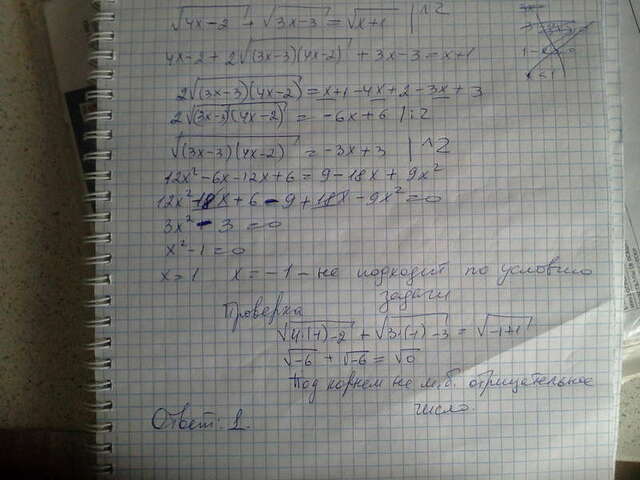 √4x-2 + √3x-3 = √x+1 | ^2
4x-2 + 2√(3x-3)(4x-2) + 3x-3 = x+1
2√(3x-3)(4x-2) = x+1-4x+2-3x+3
2√(3x-3)(4x-2) = -6x+6 |:2
√(3x-3)(4x-2) = -3x+3 | ^2
12x²-6x-12x+6 = 9-18x+9x²
12x²-18x+6-9+18x-9x²=0
3x²-3=0
x²-1=0
x=1 x=-1 - не подходит по условию
задачи
Проверка
√4·(-1)-2 + √3·(-1)-3 = √-1+1
√-6 + √-6 = √0
Под корнем не м.б. отрицательное
число.
Ответ: 1.